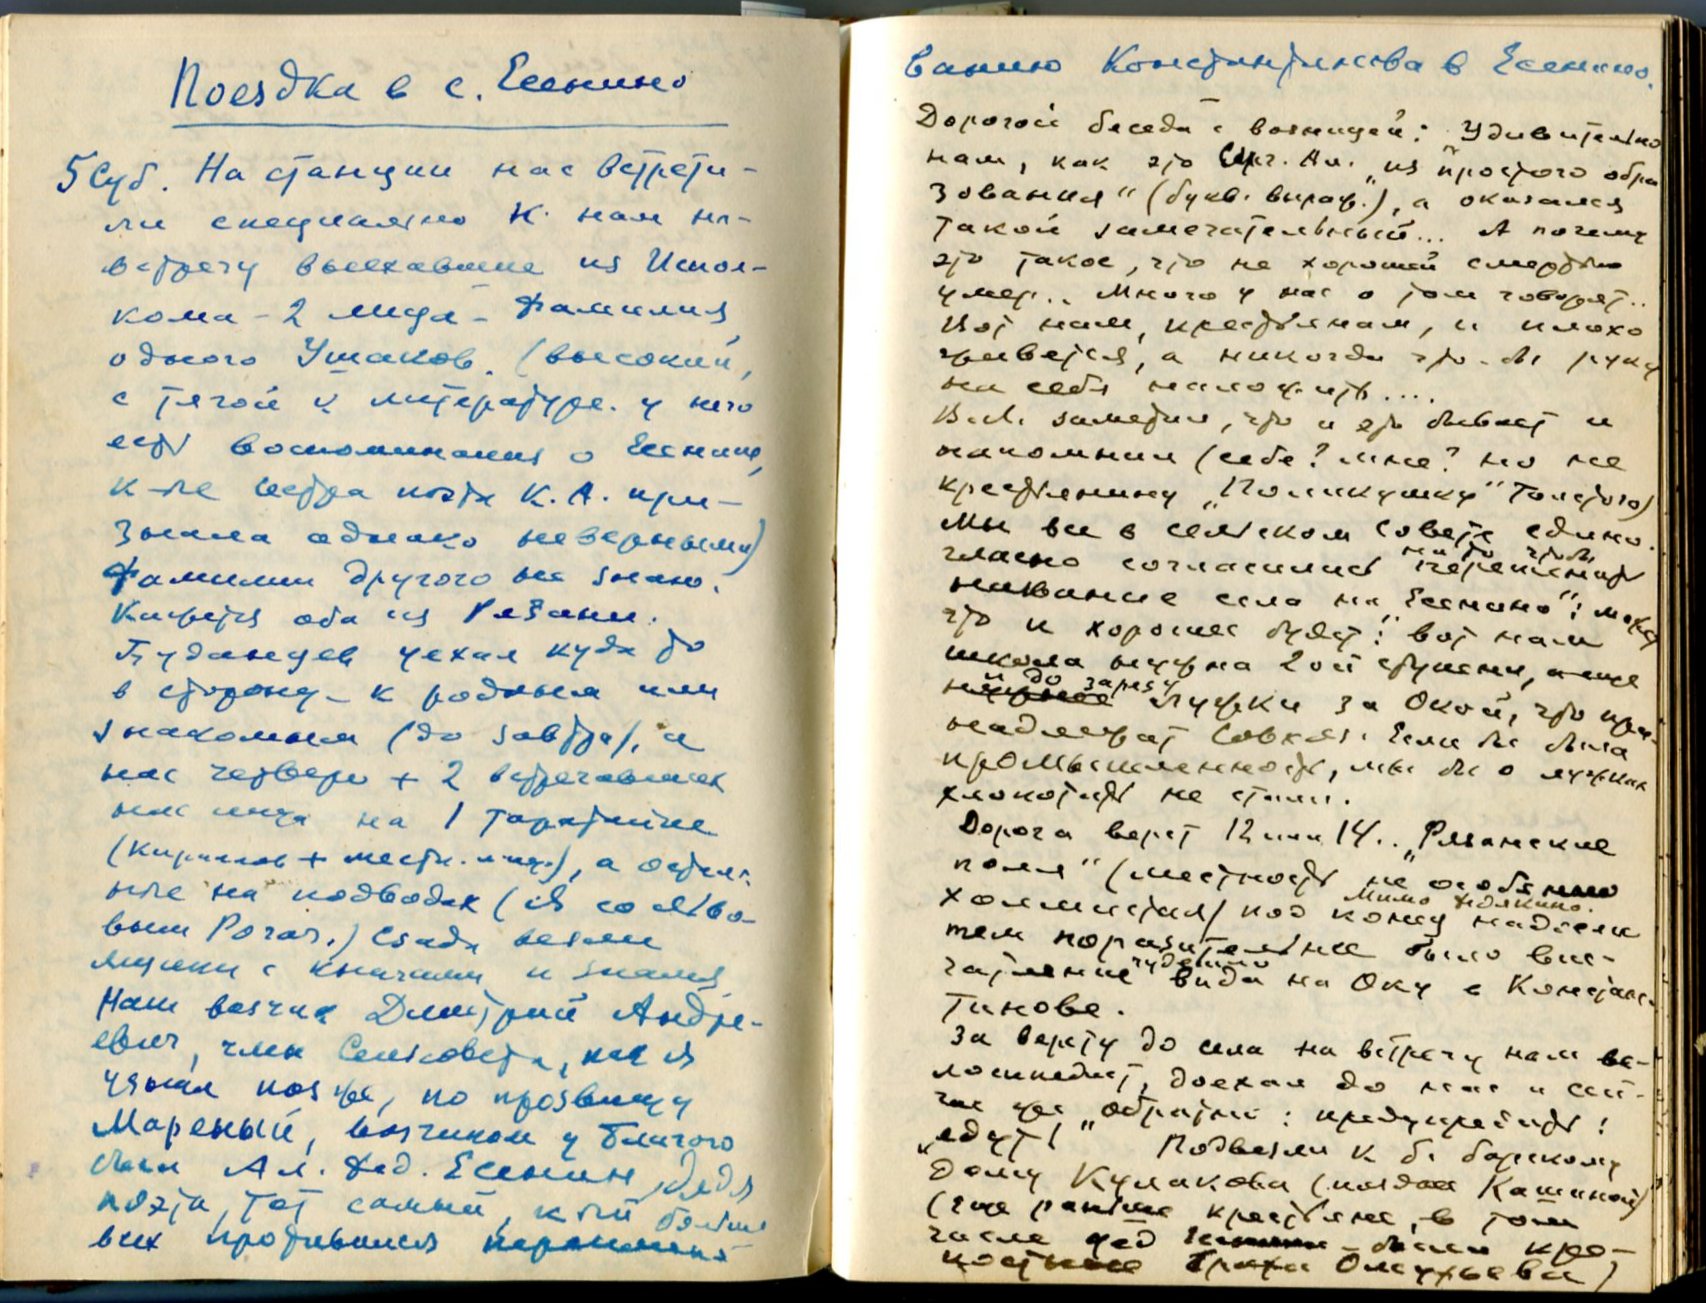 Поездка в с. Есенино
5 Суб. На станции нас встрети-
ли специально к нам на-
встречу выехавшие из Испол-
кома - 2 лица - Фамилия
одного Ушаков. (высокий,
с тягой к литературе. у него
есть воспоминания о Есенине,
к-ые сестра поэта К. А. при-
знала однако неверными)
Фамилии другого не знаю.
Кажется оба из Рязани.
Буданцев уехал куда то
в сторону - к родным или
знакомым (до завтра), а
нас четверо + 2 встречавших
нас лица на 1 таратайке
(Кириллов + местн. лица), а осталь-
ные на подводах (я со Льво-
вым Рогач.) Сзади везли
ящики с книгами и
Наш возчик Дмитрий Андре-
евич, член Сельсовета, как я
узнал позже, по прозвищу
Мареный, возчиком у
был Ал. Фед. Есенин, дядя
поэта, тот самый, к-ый больше
всех противился
ванию Константинова в Есенино.
Дорогой беседа с возницей: Удивительно
нам, как это Серг. Ал. "из простого обра
зования" (букв. выраж.), а оказался
такой замечательный... А почему
это такое, что не хорошей смертью
умер.. Много у нас о том говорят..
Вот нам, крестьянам, и плохо
живется, а никогда что-бы руку
на себя наложить....
В.Л. заметил, что и это бывает и
напомнил (себе? мне? но не
крестьянину "Поликушку" Толстого)
Мы все в сельском совете едино-
гласно согласились
название села на "Есенино": может
что и хорошее будет: вот нам
школа нужна 2ой ступени, а еще
и до зарезу лужки за Окой, что при-
надлежат Совхоз. Если бы была
промышленность, мы бы о лужках
хлопотать не стали.
Дорога верст 12 или 14.. "Рязанские
поля" (местность не особенно
холмистая) под конец надоели
мимо
тем поразительнее было впе-
чатление чудесного вида на Оку с Констан-
тинове.
За версту до села на встречу нам ве-
лосипедист, доехал до нас и сей-
час же обратно: предупредить!
"едут! Подвезли к б. барскому
Дому Кулакова (позднее Кашиной)
(еще раньше крестьяне, в том
числе дед - были кре-
постные